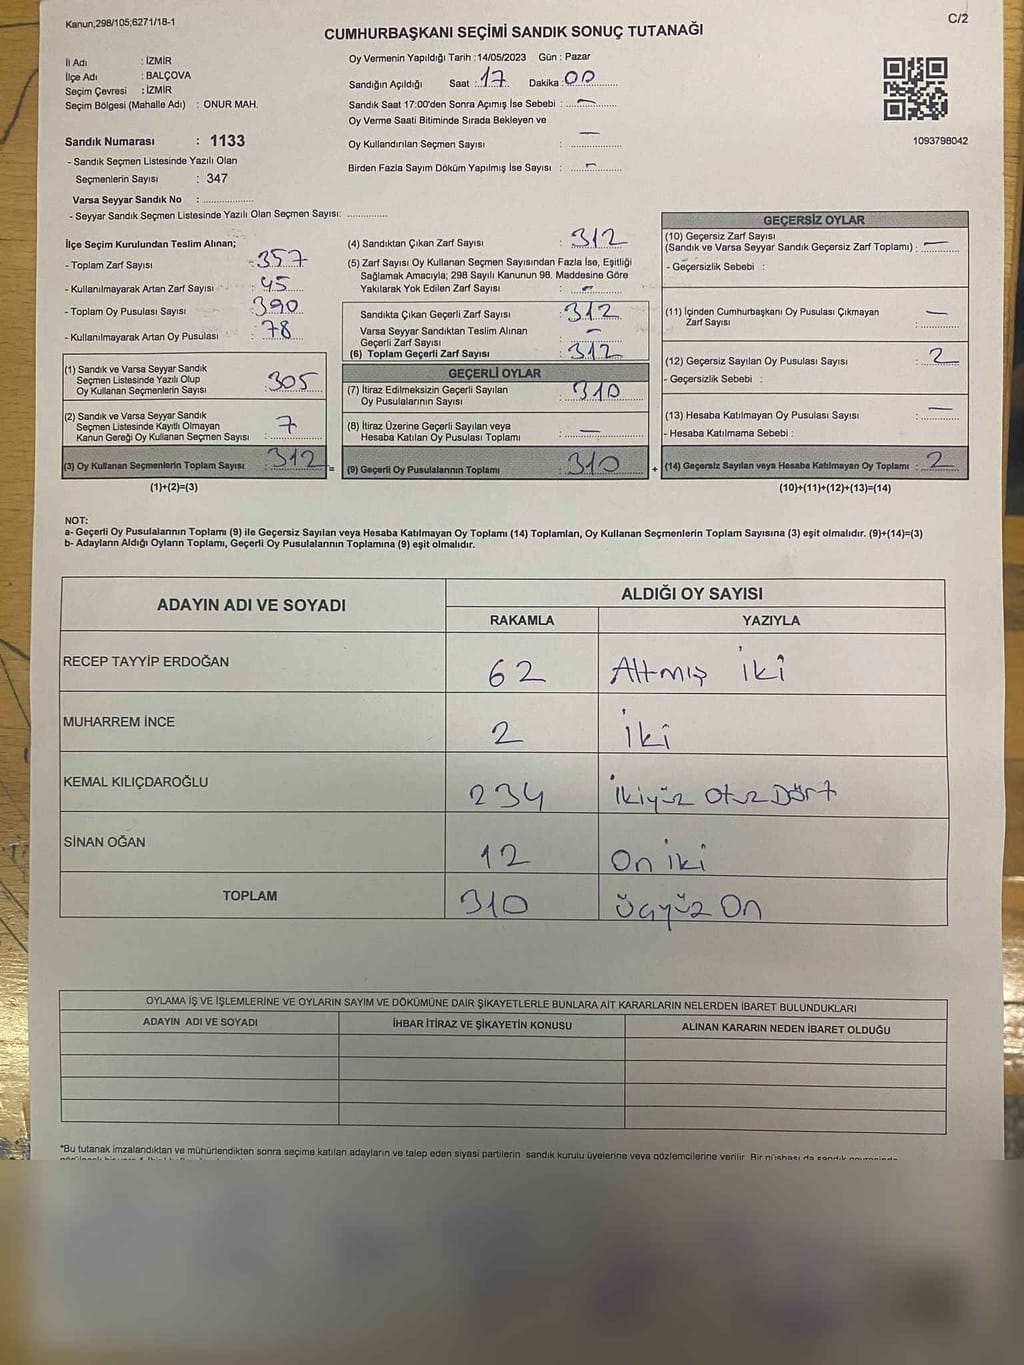 Kanun;298/105;6271/18-1
C/2
CUMHURBAŞKANI SEÇİMİ SANDIK SONUÇ TUTANAĞI
İl Adı : İZMİR
İlçe Adı : BALÇOVA
Seçim Çevresi : İZMİR
Seçim Bölgesi (Mahalle Adı) : ONUR MAH.
Sandık Numarası : 1133
- Sandık Seçmen Listesinde Yazılı Olan
Seçmenlerin Sayısı : 347
Varsa Seyyar Sandık No : ..................
- Seyyar Sandık Seçmen Listesinde Yazılı Olan Seçmen Sayısı: ..............
Oy Vermenin Yapıldığı Tarih :14/05/2023 Gün : Pazar
Sandığın Açıldığı Saat : 17 Dakika : 00
Sandık Saat 17:00'den Sonra Açımış İse Sebebi : —
Oy Verme Saati Bitiminde Sırada Bekleyen ve
Oy Kullandırılan Seçmen Sayısı : —
Birden Fazla Sayım Döküm Yapılmış İse Sayısı : —
1093798042
İlçe Seçim Kurulundan Teslim Alınan;
- Toplam Zarf Sayısı : 357
- Kullanılmayarak Artan Zarf Sayısı : 45
- Toplam Oy Pusulası Sayısı : 390
- Kullanılmayarak Artan Oy Pusulası : 78
(1) Sandık ve Varsa Seyyar Sandık
Seçmen Listesinde Yazılı Olup
Oy Kullanan Seçmenlerin Sayısı : 305
(2) Sandık ve Varsa Seyyar Sandık
Seçmen Listesinde Kayıtlı Olmayan
Kanun Gereği Oy Kullanan Seçmen Sayısı : 7
(3) Oy Kullanan Seçmenlerin Toplam Sayısı : 312 =
(1)+(2)=(3)
(4) Sandıktan Çıkan Zarf Sayısı : 312
(5) Zarf Sayısı Oy Kullanan Seçmen Sayısından Fazla İse, Eşitliği
Sağlamak Amacıyla; 298 Sayılı Kanunun 98. Maddesine Göre
Yakılarak Yok Edilen Zarf Sayısı : —
Sandıkta Çıkan Geçerli Zarf Sayısı : 312
Varsa Seyyar Sandıktan Teslim Alınan
Geçerli Zarf Sayısı : —
(6) Toplam Geçerli Zarf Sayısı : 312
GEÇERLİ OYLAR
(7) İtiraz Edilmeksizin Geçerli Sayılan
Oy Pusulalarının Sayısı : 310
(8) İtiraz Üzerine Geçerli Sayılan veya
Hesaba Katılan Oy Pusulası Toplamı : —
(9) Geçerli Oy Pusulalarının Toplamı : 310 +
GEÇERSİZ OYLAR
(10) Geçersiz Zarf Sayısı
(Sandık ve Varsa Seyyar Sandık Geçersiz Zarf Toplamı) : —
- Geçersizlik Sebebi :
(11) İçinden Cumhurbaşkanı Oy Pusulası Çıkmayan
Zarf Sayısı : —
(12) Geçersiz Sayılan Oy Pusulası Sayısı : 2
- Geçersizlik Sebebi :
(13) Hesaba Katılmayan Oy Pusulası Sayısı : —
- Hesaba Katılmama Sebebi :
(14) Geçersiz Sayılan veya Hesaba Katılmayan Oy Toplamı : 2
(10)+(11)+(12)+(13)=(14)
NOT:
a- Geçerli Oy Pusulalarının Toplamı (9) ile Geçersiz Sayılan veya Hesaba Katılmayan Oy Toplamı (14) Toplamları, Oy Kullanan Seçmenlerin Toplam Sayısına (3) eşit olmalıdır. (9)+(14)=(3)
b- Adayların Aldığı Oyların Toplamı, Geçerli Oy Pusulalarının Toplamına (9) eşit olmalıdır.
ADAYIN ADI VE SOYADI ALDIĞI OY SAYISI
RAKAMLA YAZIYLA
RECEP TAYYİP ERDOĞAN 62 Altmış iki
MUHARREM İNCE 2 iki
KEMAL KILIÇDAROĞLU 234 İkiyüz Otuz Dört
SİNAN OĞAN 12 On iki
TOPLAM 310 Üçyüz On
OYLAMA İŞ VE İŞLEMLERİNE VE OYLARIN SAYIM VE DÖKÜMÜNE DAİR ŞİKAYETLERLE BUNLARA AİT KARARLARIN NELERDEN İBARET BULUNDUKLARI
ADAYIN ADI VE SOYADI İHBAR İTİRAZ VE ŞİKAYETİN KONUSU ALINAN KARARIN NEDEN İBARET OLDUĞU
*Bu tutanak imzalandıktan ve mühürlendikten sonra seçime katılan adayların ve talep eden siyasi partilerin sandık kurulu üyelerine veya gözlemcilerine verilir. Bir nüshası da sandık çevresinde